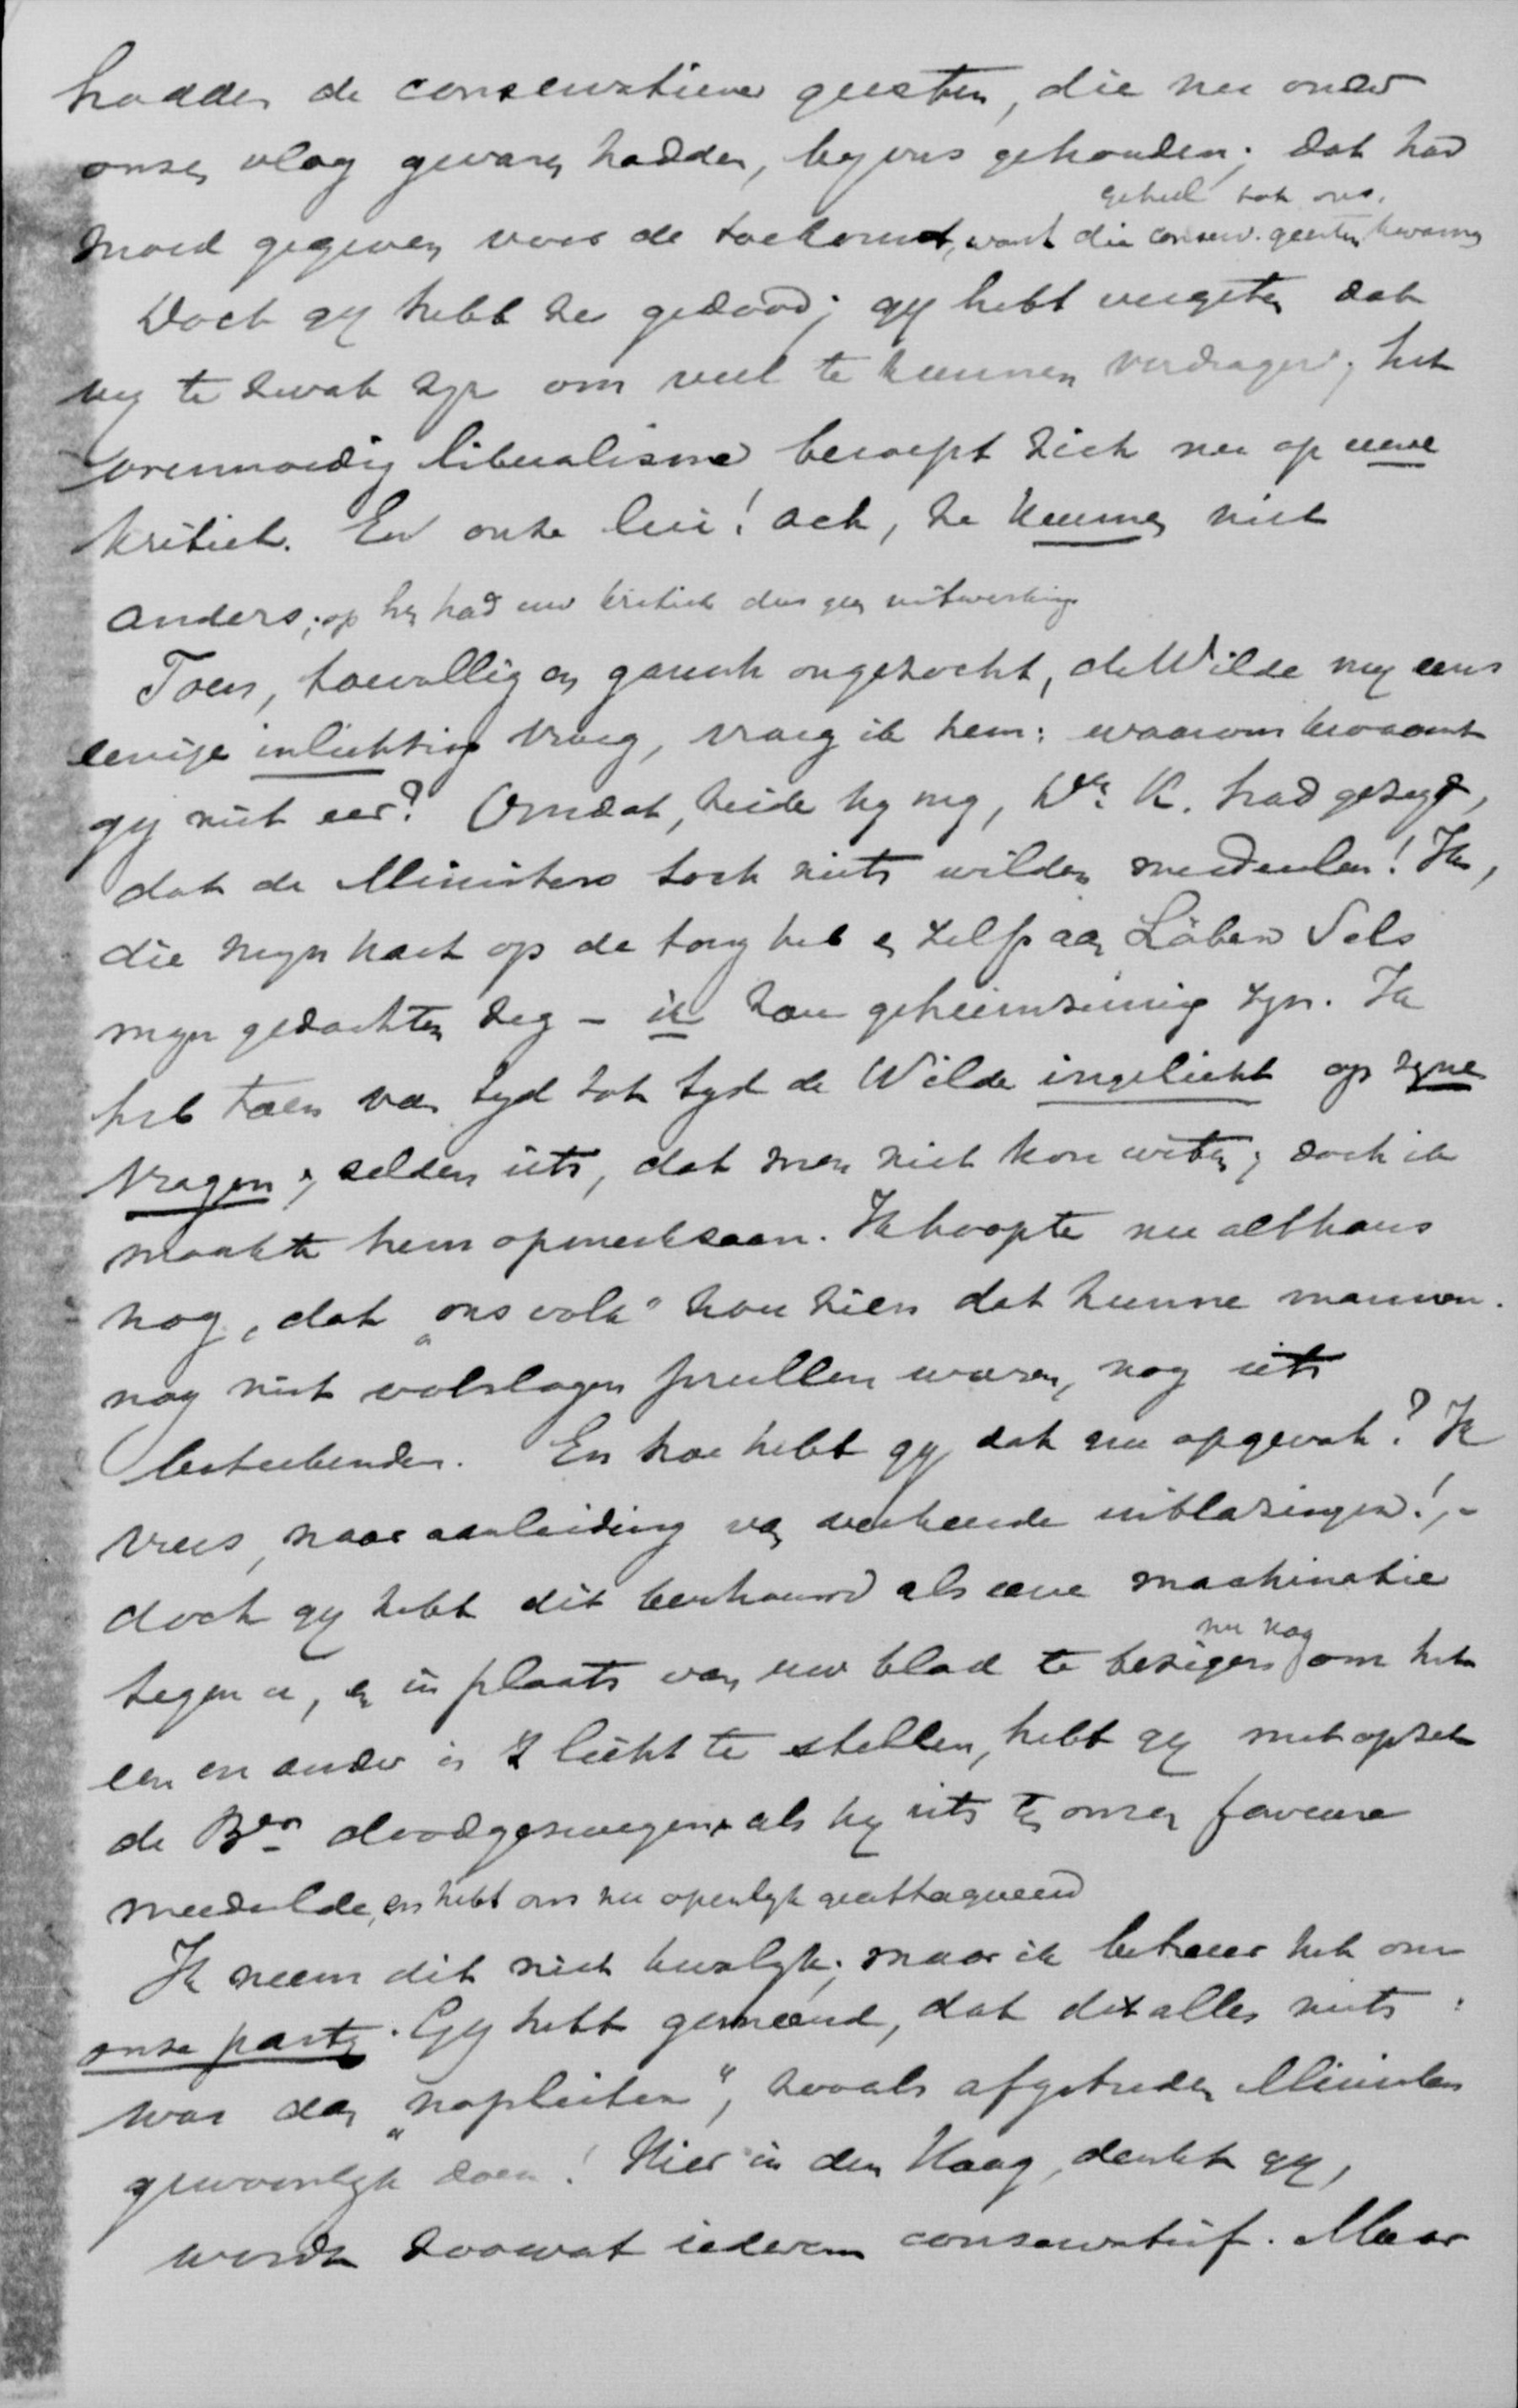 hadden de conservatieve geesten, die nu onder
onze vlag gevaren hadden, by ons gehouden; dat had
moed gegeven voor de toekomst, want die conserv. geesten kwamen
geheel tot ons.
Doch gy hebt ze gedood; gy hebt vergeten dat
wy te zwak zyn om veel te kunnen verdragen; het
liberalisme beroept zich nu op uwe
kritiek. En onze lui! ach, ze kunnen niet
anders; op hen had uw kritiek dus geen uitwerking
Toen, toevallig en gansch ongezocht, de Wilde my eens
eenige inlichting vroeg, vroeg ik hem: waarom kwaamt
gy niet eer? Omdat, zeide hy my, Dr. K. had gezegd,
dat de Ministers toch niets wilden mededeelen! Ik,
die myn hart op de tong heb en zelfs aan Löben Sels
myn gedachten zeg - ik zou geheimzinnig zyn. Ik
heb toen van tyd tot tyd de Wilde ingelicht op zyne
vragen; zelden iets, dat men niet kon weten; doch ik
maakte hem opmerkzaam. Ik hoopte nu althans
nog, dat "ons volk" zou zien dat hunne mannen
nog niet volslagen prullen waren, nog iets
beteekenden. En hoe hebt gy dat nu opgevat? Ik
vrees, naar aanleiding van verkeerde inblazingen! -
doch gy hebt dit beschouwd als eene machinatie
tegen u, en in plaats van uw blad te bezigen nu nog om het
een en ander in 't licht te stellen, hebt gy met opzet
de Ber doodgezwegen als hy iets ten onzen faveure
mededeelde, en hebt ons nu openlyk geattaqueerd
Ik neem dit niet kwalyk; maar ik betreur het om
onze party. Gy hebt gemeend, dat dit alles niets
was dan "napleiten", zooals afgetreden Ministers
gewoonlyk doen! Hier in den Haag, denkt gy,
wordt zoowat iedereen conservatief. Maar